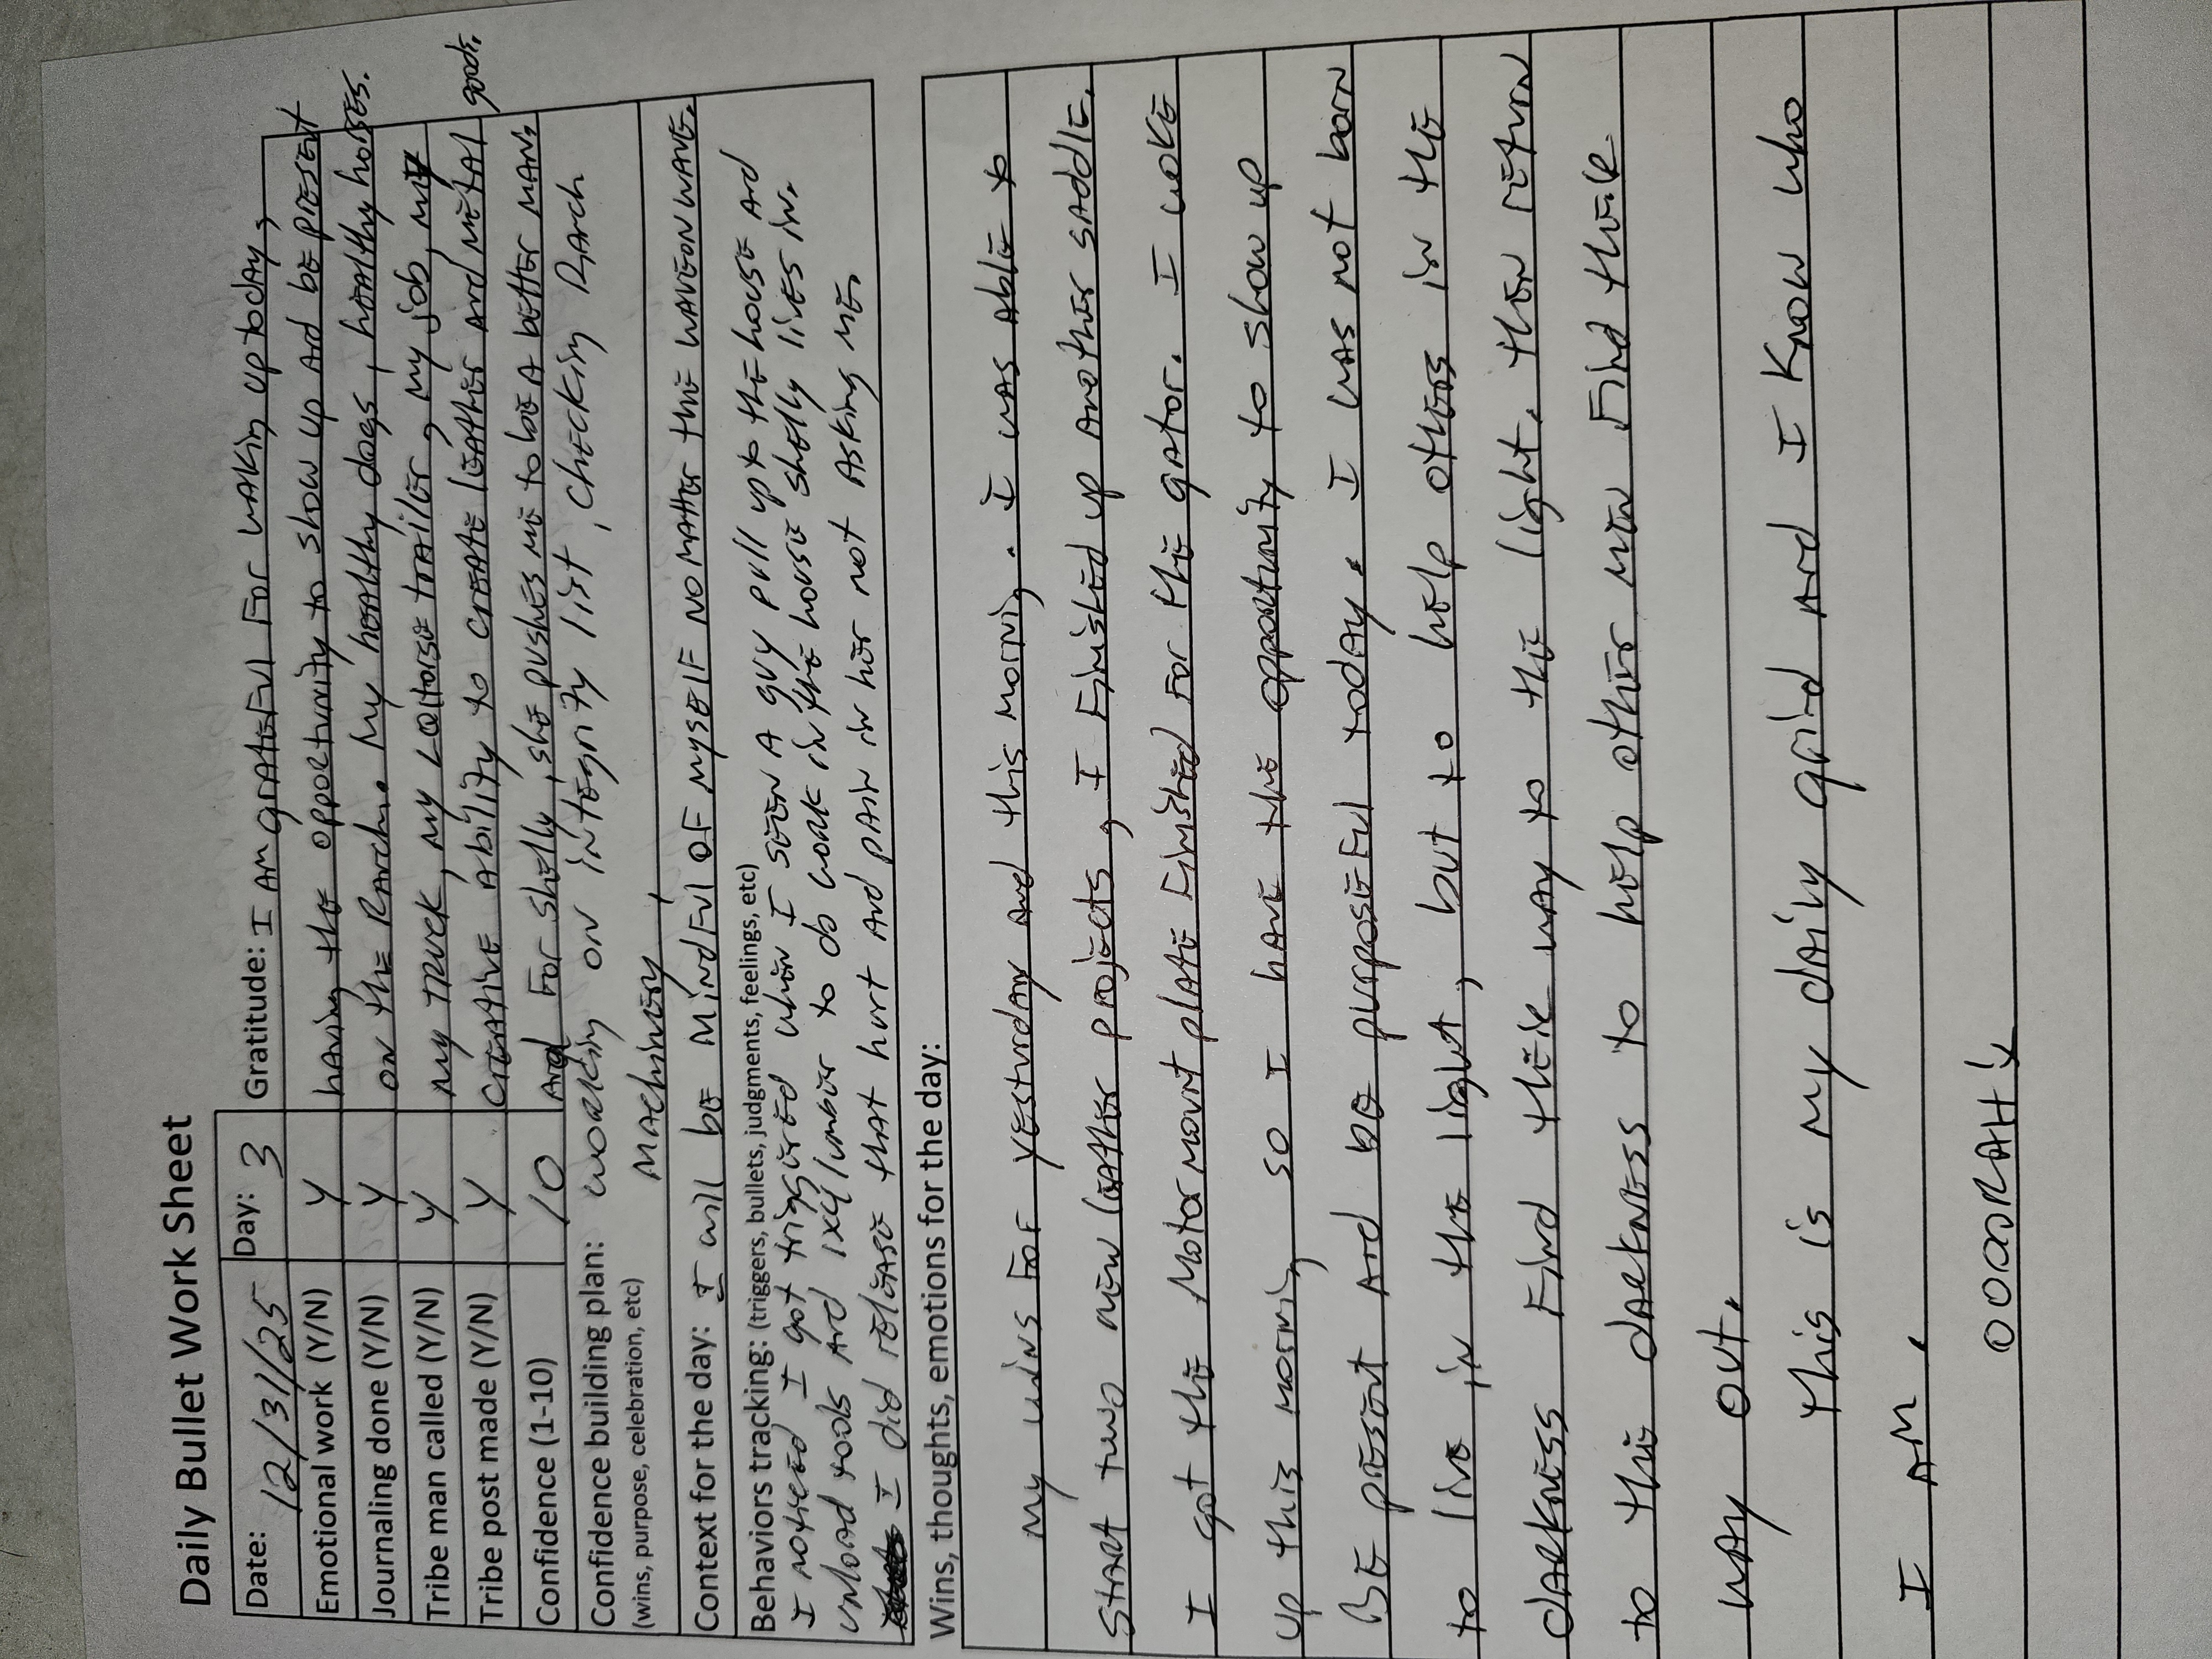 Daily Bullet Work Sheet
Date: 12/31/25 Day: 3 Gratitude: I AM gratEFul For wAKin up today,
Emotional work (Y/N) Y having thE opportunity to show up And bE prEsEnt
Journaling done (Y/N) Y on thE RAnch. My hEalthy dogs, hEalthy horsEs.
Tribe man called (Y/N) Y my TRUCK, my horsE trailEr, my job, my
Tribe post made (Y/N) Y crEAtivE Ability to crEAtE lEAthEr And mEtAl goods,
Confidence (1-10) 10 And For shElly, shE pushEs mE to bE A bEttEr mAn.
Confidence building plan: woRking on intEgrity list, chEcking RAnch
(wins, purpose, celebration, etc) MAchinEry
Context for the day: I will bE MindFul oF mysElF no mAttEr thE
Behaviors tracking: (triggers, bullets, judgments, feelings, etc)
I noticEd I got triggErEd whEn I sEEn A guy pull up to thE housE And
unloAd tools And 1x4 lumbEr to do woRk in thE housE shElly livEs in.
I did rElEAsE thAt hurt And pAin in hEr not Asking mE.
Wins, thoughts, emotions for the day:
My wins For yEsturdAy And this morning. I wAs AblE to
StArt two nEw lEAthEr projEcts, I FinishEd up AnothEr sAddlE.
I got thE Motor mount plAtE FinishEd For thE gAtor. I wokE
up this morning so I hAvE thE opportunity to show up
BE prEsEnt And bE purposEFul todAy. I wAs not born
to livE in thE light, but to hElp othErs in thE
dArknEss Find thEir wAy to thE light. thEn rEturn
to thE dArknEss to hElp othEr mEn Find thEiR
wAy out.
This is My dAily grind And I Know who
I AM.
OOOORAH!